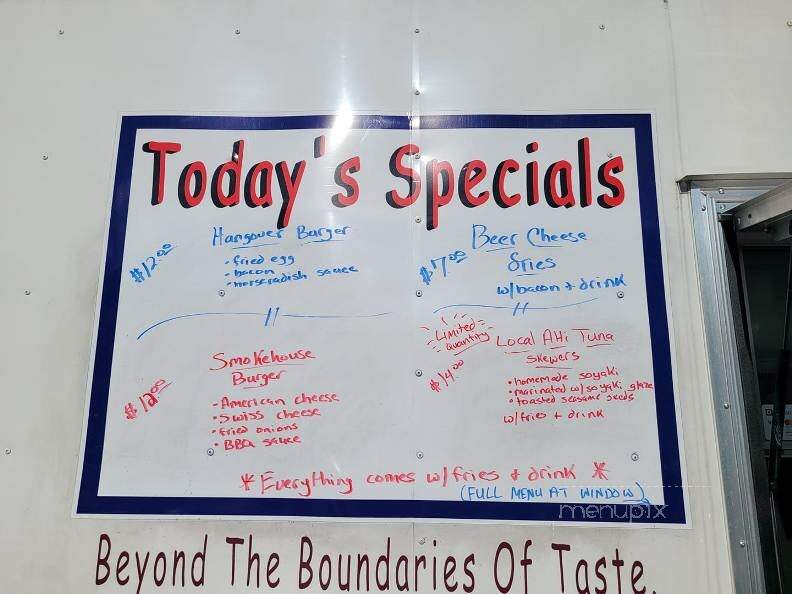 Today's Specials
Hangover Burger
$12.00
• fried egg
• bacon
• horseradish sauce
Beer Cheese
fries
$7.00
w/bacon + drink
Smokehouse
Burger
$12.00
- American cheese
• Swiss cheese
• fried onions
• BBQ sauce
Limited
Quantity
$14.00
Local AHi Tuna
Skewers
• homemade soyaki
• marinated w/soyaki glaze
• toasted sesame seeds
w/fries + drink
* Everything comes w/fries + drink *
(FULL MENU AT WINDOW)
menupix
Beyond The Boundaries Of Taste.